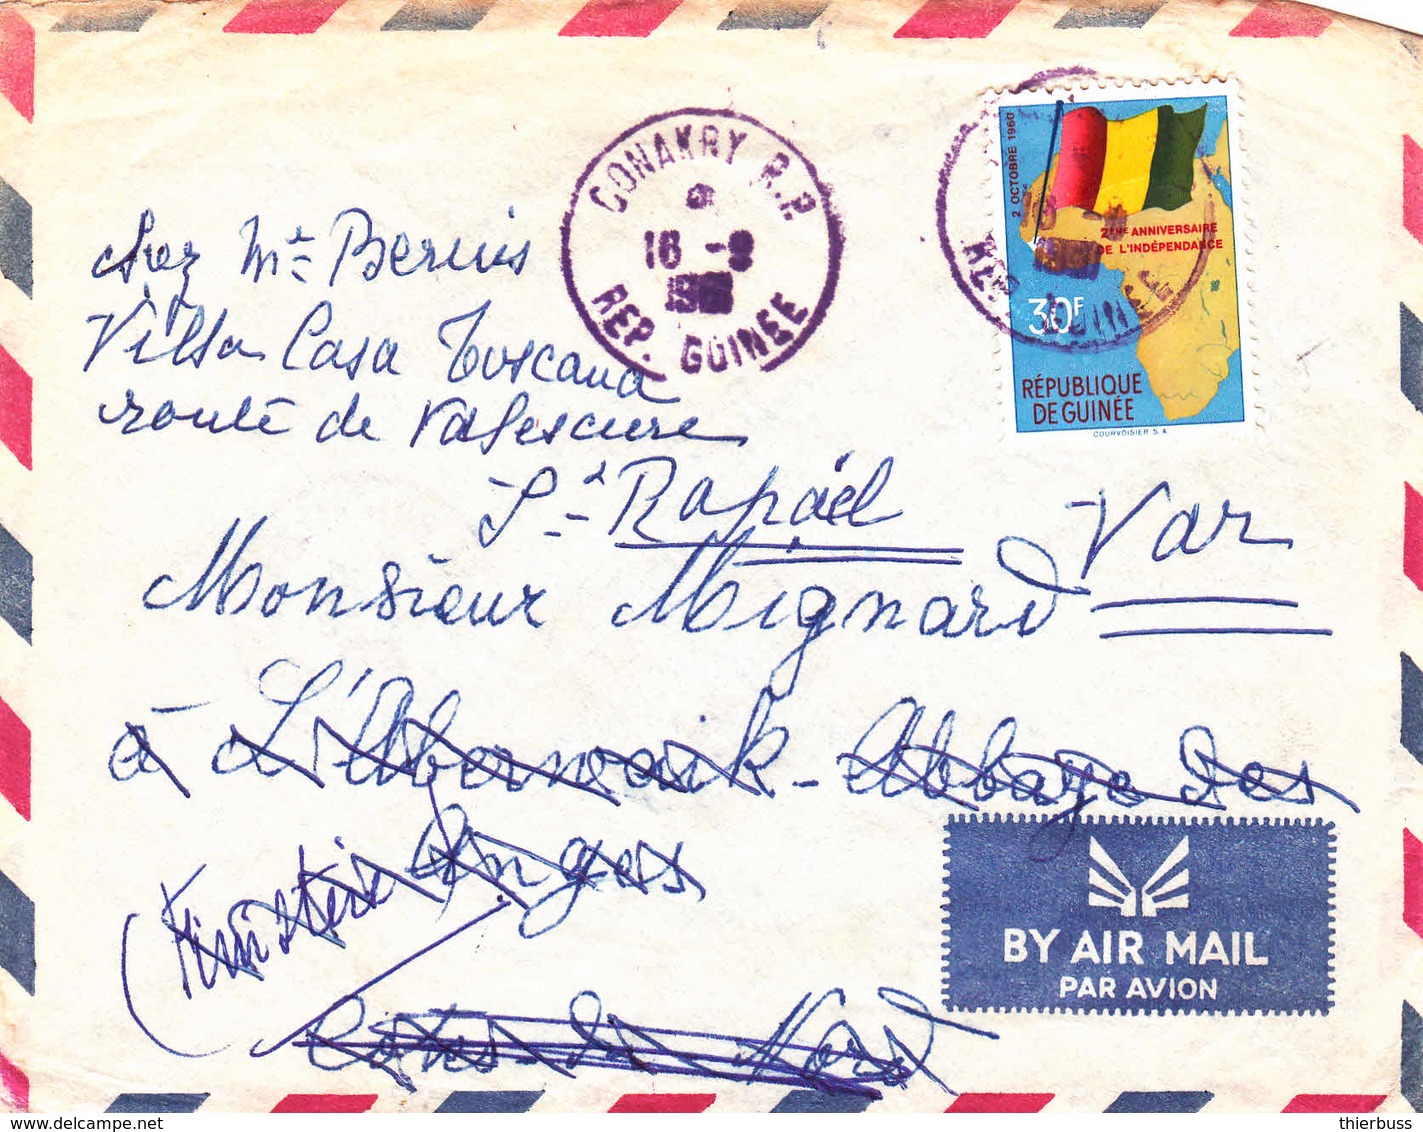 CONAKRY R.P.
16 -9
REP. GUINEE
2 OCTOBRE 1960
2ÈME ANNIVERSAIRE
DE L'INDÉPENDANCE
30F
RÉPUBLIQUE
DE GUINÉE
COURVOISIER S.A
REP. GUINEE
chez Mr Bernis
Villa Casa Toscana
route de Valescure
St Raphaël Var
Monsieur Mignard
à L'Abernoaik - Abbaye des
Anges
Côtes du Nord
BY AIR MAIL
PAR AVION
www.delcampe.net
thierbuss